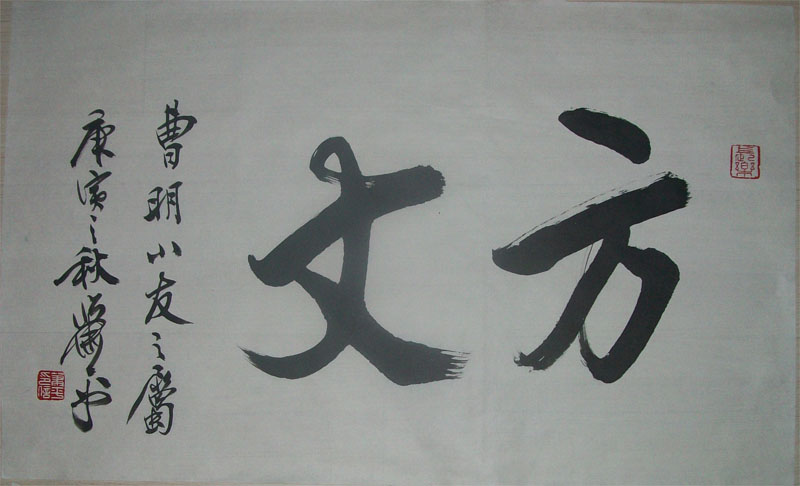 方丈
曹明小友之屬
庚寅之秋